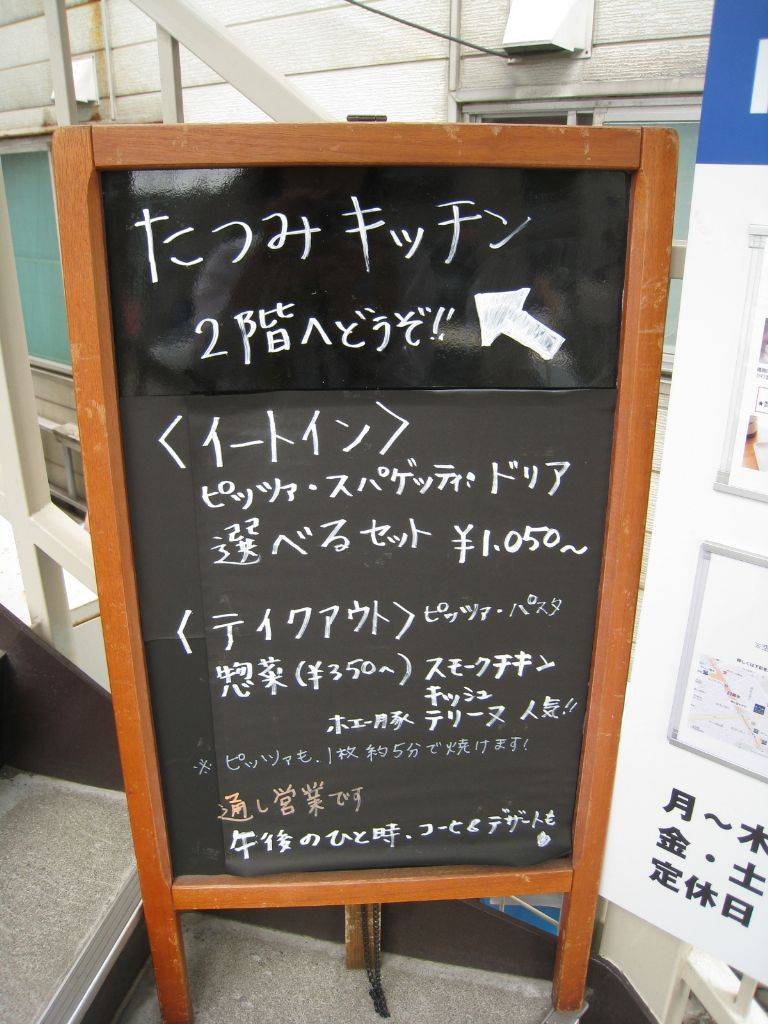 たつみキッチン
2階へどうぞ!!
〈イートイン〉
ピッツァ・スパゲッティ・ドリア
選べるセット ¥1.050〜
〈テイクアウト〉ピッツァ・パスタ
惣菜(¥350〜) スモークチキン
キッシュ
ホエー豚 テリーヌ 人気!!
※ピッツァも、1枚 約5分で焼けます!
通し営業です
午後のひと時、コーヒー&デザートも
月〜木
金・土
定休日